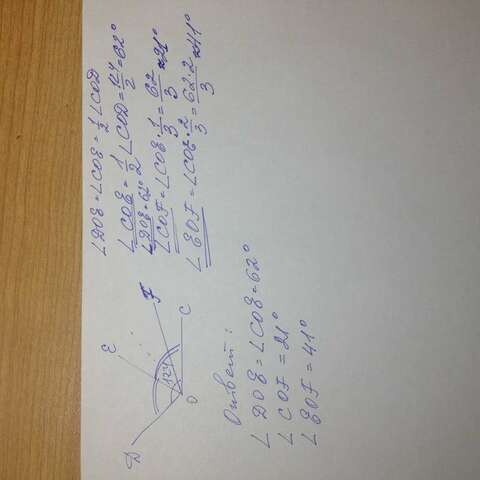 D
E
F
124
O
C
∠DOE = ∠COE = 1/2 ∠COD
∠COE = 1/2 ∠COD = 124/2 = 62°
∠DOE = 62°
∠COF = ∠COE · 1/3 = 62/3 ≈ 21°
∠EOF = ∠COE · 2/3 = 62·2/3 ≈ 41°
Ответ:
∠ DOE = ∠COE = 62°
∠ COF = 21°
∠ EOF = 41°